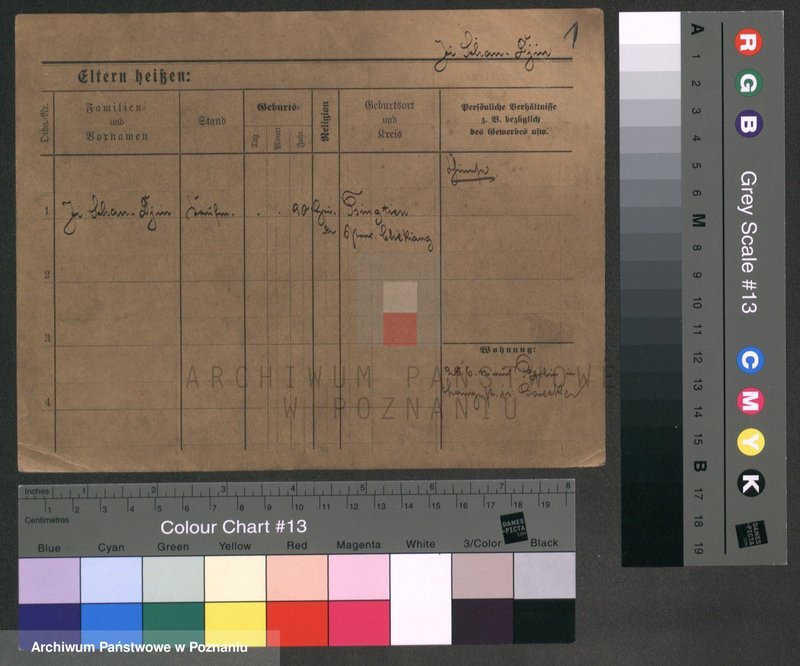 Ji Schan-Djin
1
Eltern heißen:
Ordn.-Nr.
Familien- und Vornamen
Stand
Geburts-
Tag
Monat
Jahr
Religion
Geburtsort und Kreis
Persönliche Verhältnisse z. B. bezüglich des Gewerbes usw.
1
Ji Schan-Djin
90
Tsingtien
Prov. Chekiang
2
3
Wohnung:
4
ARCHIWUM PAŃSTWOWE
W POZNANIU
Inches 1 2 3 4 5 6 7 8
Centimetres 1 2 3 4 5 6 7 8 9 10 11 12 13 14 15 16 17 18 19
Colour Chart #13
DANES-PICTA.COM
Blue Cyan Green Yellow Red Magenta White 3/Color Black
Archiwum Państwowe w Poznaniu
A 1 2 3 4 5 6 M 8 9 10 11 12 13 14 15 B 17 18 19
R G B
Grey Scale #13
C M Y K
DANES-PICTA.COM